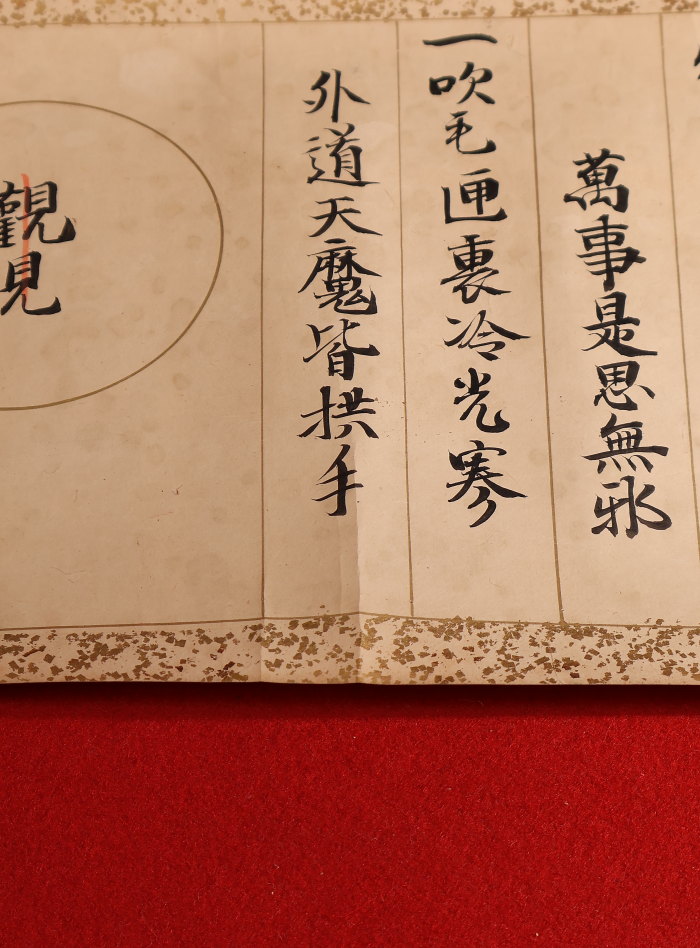 萬事是思無邪
一吹毛匣裏冷光寒
外道天魔皆拱手
觀見